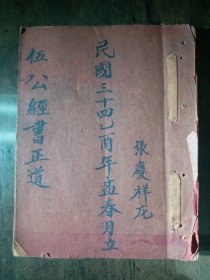 張慶祥龙
民國三十四乙酉年孟春月立
伍公經書正道